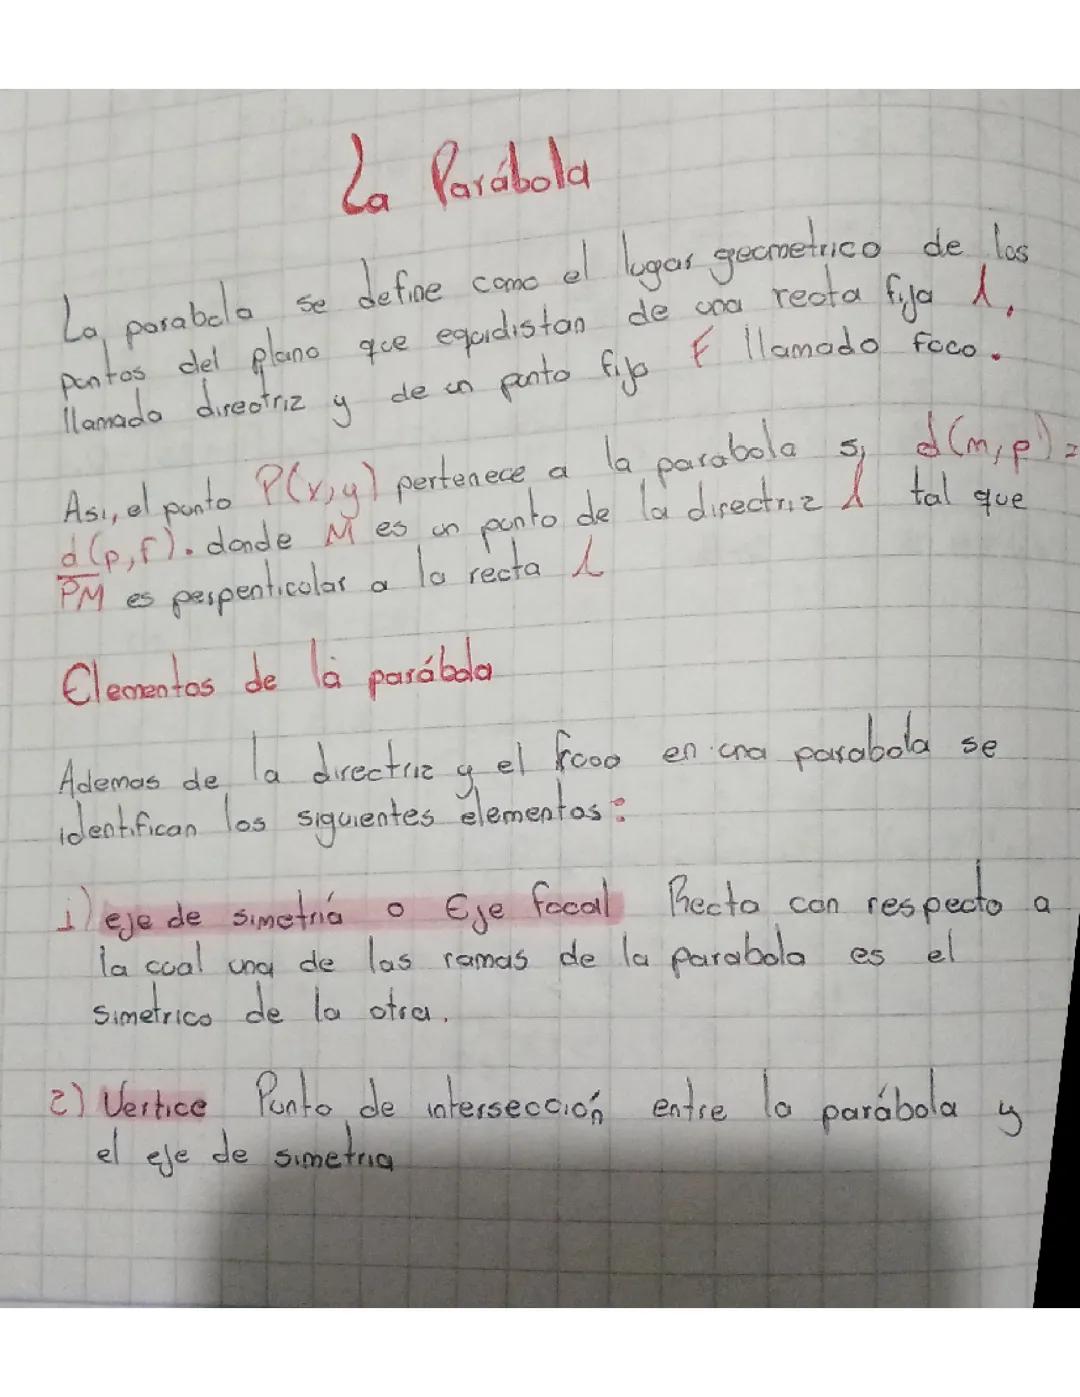 La Parábola
La parabola se define como el lugar geometrico de los
puntos del plano que equidistan de una recta fija l,
llamada directriz y de un punto fijo F llamado foco.
Asi, el punto P(x,y) pertenece a la parabola si d(m,p)=
d(p,f). donde M es un punto de la directriz l tal que
PM es perpenticular a la recta l
Elementos de la parábola
Ademas de la directriz y el foco en una parabola se
identifican los siguientes elementos:
1) eje de simetria o Eje focal Recta con respecto a
la cual una de las ramas de la parabola es el
simetrico de la otra.
2) Vertice Punto de intersección entre la parábola y
el eje de simetria